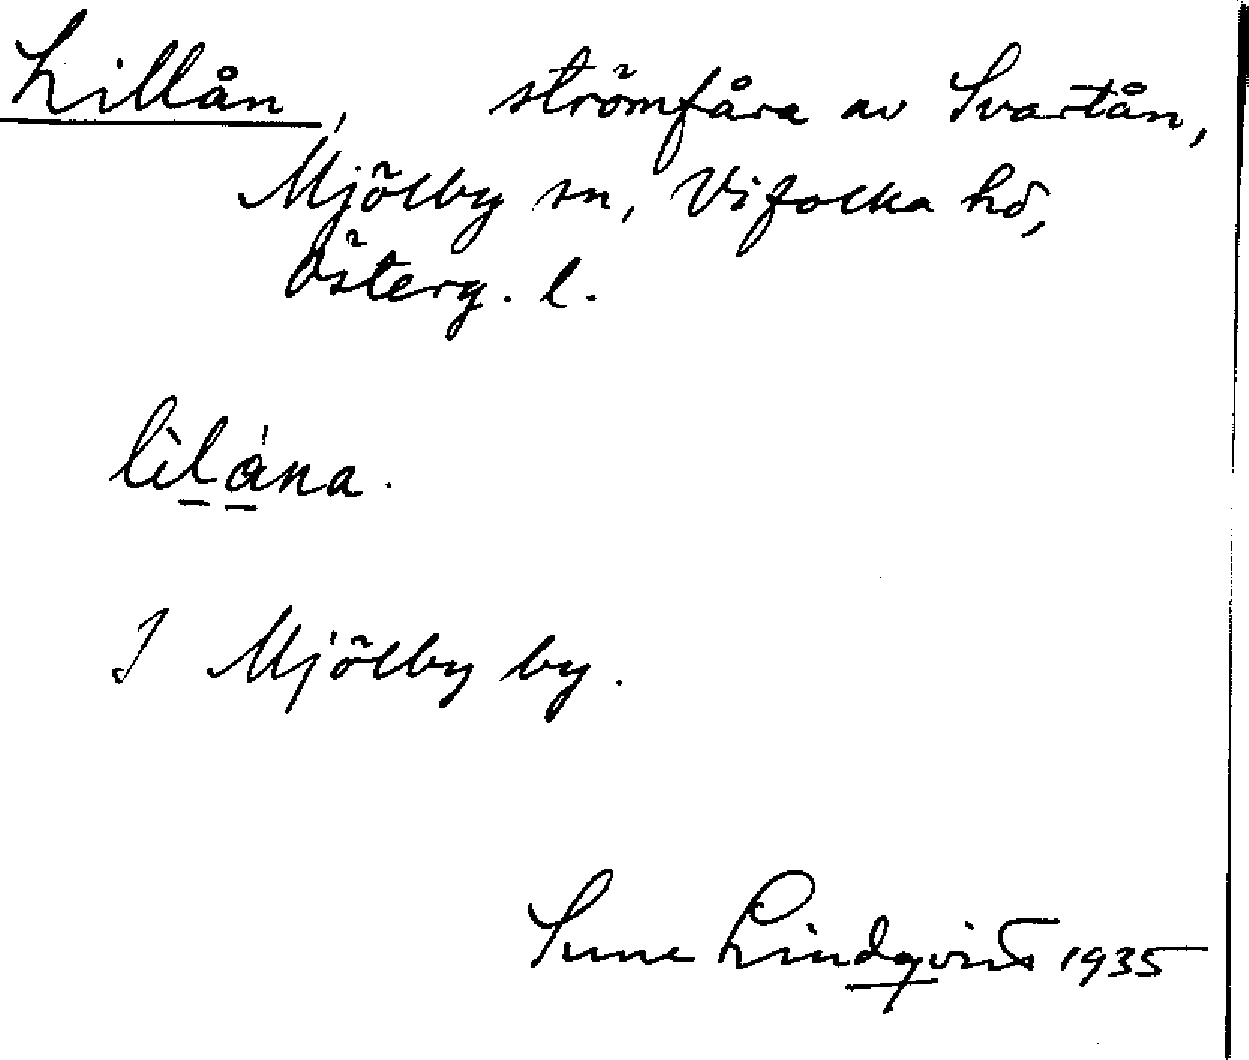 Lillån, strömfåra av Svartån,
Mjölby sn, Vifolka hd,
Österg. l.
lìlána.
I Mjölby by.
Sune Lindqvist 1935